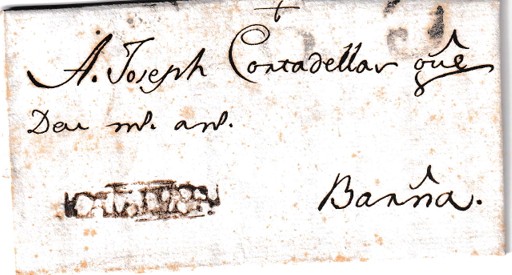 A. Joseph Cortadellas que
Deu mª. anª.
Barña.